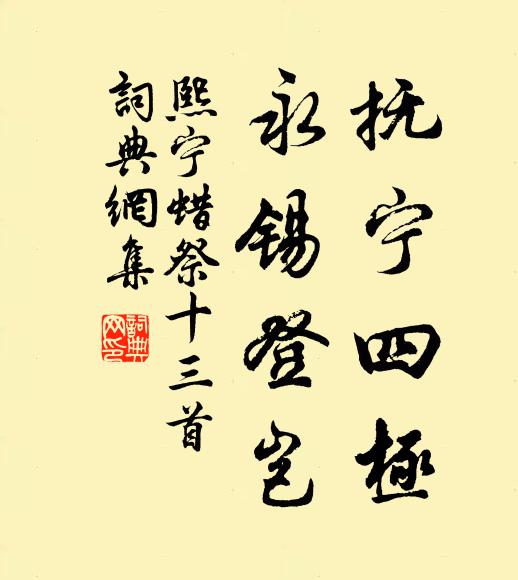 抚宁四極
永锡登岂
熙宁蜡祭十三首
詞典網集
詞典网印